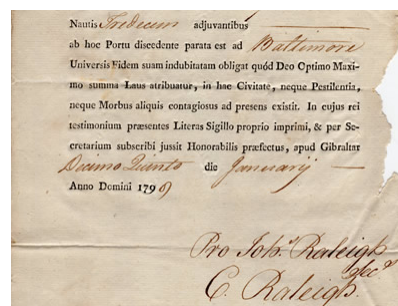 Nautis Tredecim adjuvantibus
ab hoc Portu discedente parata est ad Baltimore
Universis Fidem suam indubitatam obligat quód Deo Optimo Maxi-
mo summa Laus atribuatur, in hac Civitate, neque Pestilentia,
neque Morbus aliquis contagiosus ad presens existit. In cujus rei
testimonium præsentes Literas Sigillo proprio imprimi, & per Se-
cretarium subscribi jussit Honorabilis præfectus, apud Gibraltar
Decimo Quinto die Januarij
Anno Domini 179
Pro Joh.ⁿ Raleigh
Sec.ʸ
C. Raleigh.